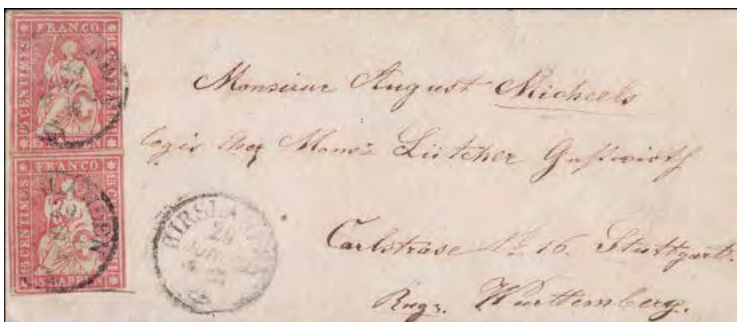 FRANCO
15 CENTIMES
15 RAPPEN
FRANCO
15 CENTIMES
15 RAPPEN
HIRSLANDEN
Monsieur August Micheels
logis chez Monsr Lütcher Gastwirth
Carlstrase No 16. Stuttgart.
Württemberg.